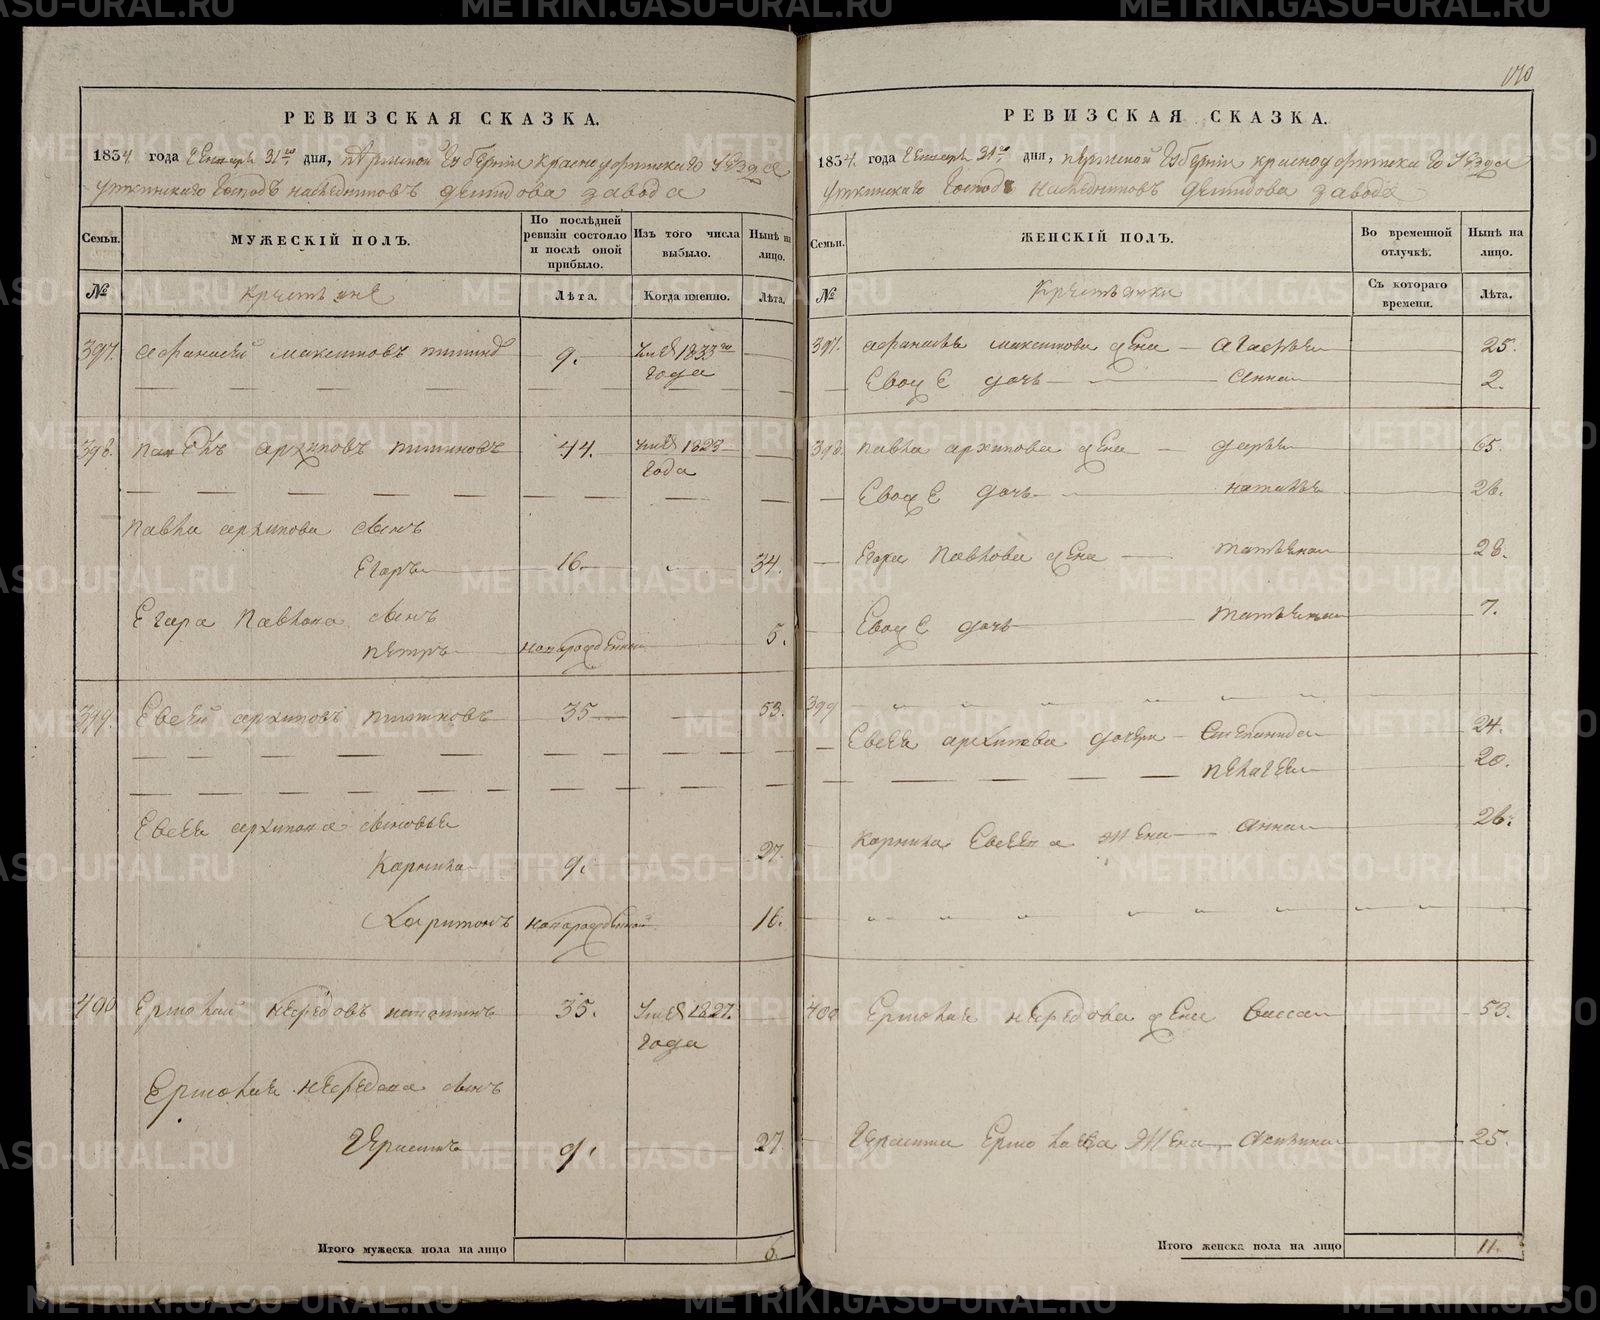 РЕВИЗСКАЯ СКАЗКА.
1834 года Декабря 31го дня, Пермской Губернии Красноуфимскаго Уѣзда
Уткинскаго Господъ наследниковъ Демидова завода
Семьи.
МУЖЕСКІЙ ПОЛЪ.
По послѣдней ревизіи состояло и послѣ оной прибыло.
Изъ того числа выбыло.
Нынѣ на лицо.
№
Крестьяне
Лѣта.
Когда именно.
Лѣта.
397. Афанасей Максимовъ 9. 1833го
года
398. Архиповъ 44. 1823
года
Павла Архипова сынъ
Егоръ 16. 34.
Егора Павлова сынъ
Петръ новорожденной 5.
399. Евсей Архиповъ 35 53.
Евсея Архипова сыновья
Корнило 9. 27.
Харитонъ новорожденной 16.
400 Ермолай 35. 1827.
года
Ермолая сынъ
Герасимъ 9. 27.
Итого мужеска пола на лицо 6.
РЕВИЗСКАЯ СКАЗКА.
1834. года Декабря 31го дня, Пермской Губернии Красноуфимскаго Уѣзда
Уткинскаго Господъ наследниковъ Демидова завода
Семьи.
ЖЕНСКІЙ ПОЛЪ.
Во временной отлучкѣ.
Нынѣ на лицо.
№
Крестьянки
Съ котораго времени.
Лѣта.
397. Афанасья Максимова жена Агафья 25.
Ево же дочь Анна 2.
398. Павла Архипова жена Дарья 65.
Ево же дочь Наталья 26.
Егора Павлова жена Татьяна 28.
Ево же дочь Татьяна 7.
399
Евсея Архипова дочери Степанида 24.
Пелагея 20.
Корнила Евсеева жена Анна 26.
400 Ермолая жена Васса 53.
Герасима Ермолаева жена 25.
Итого женска пола на лицо 11.
METRIKI.GASO-URAL.RU